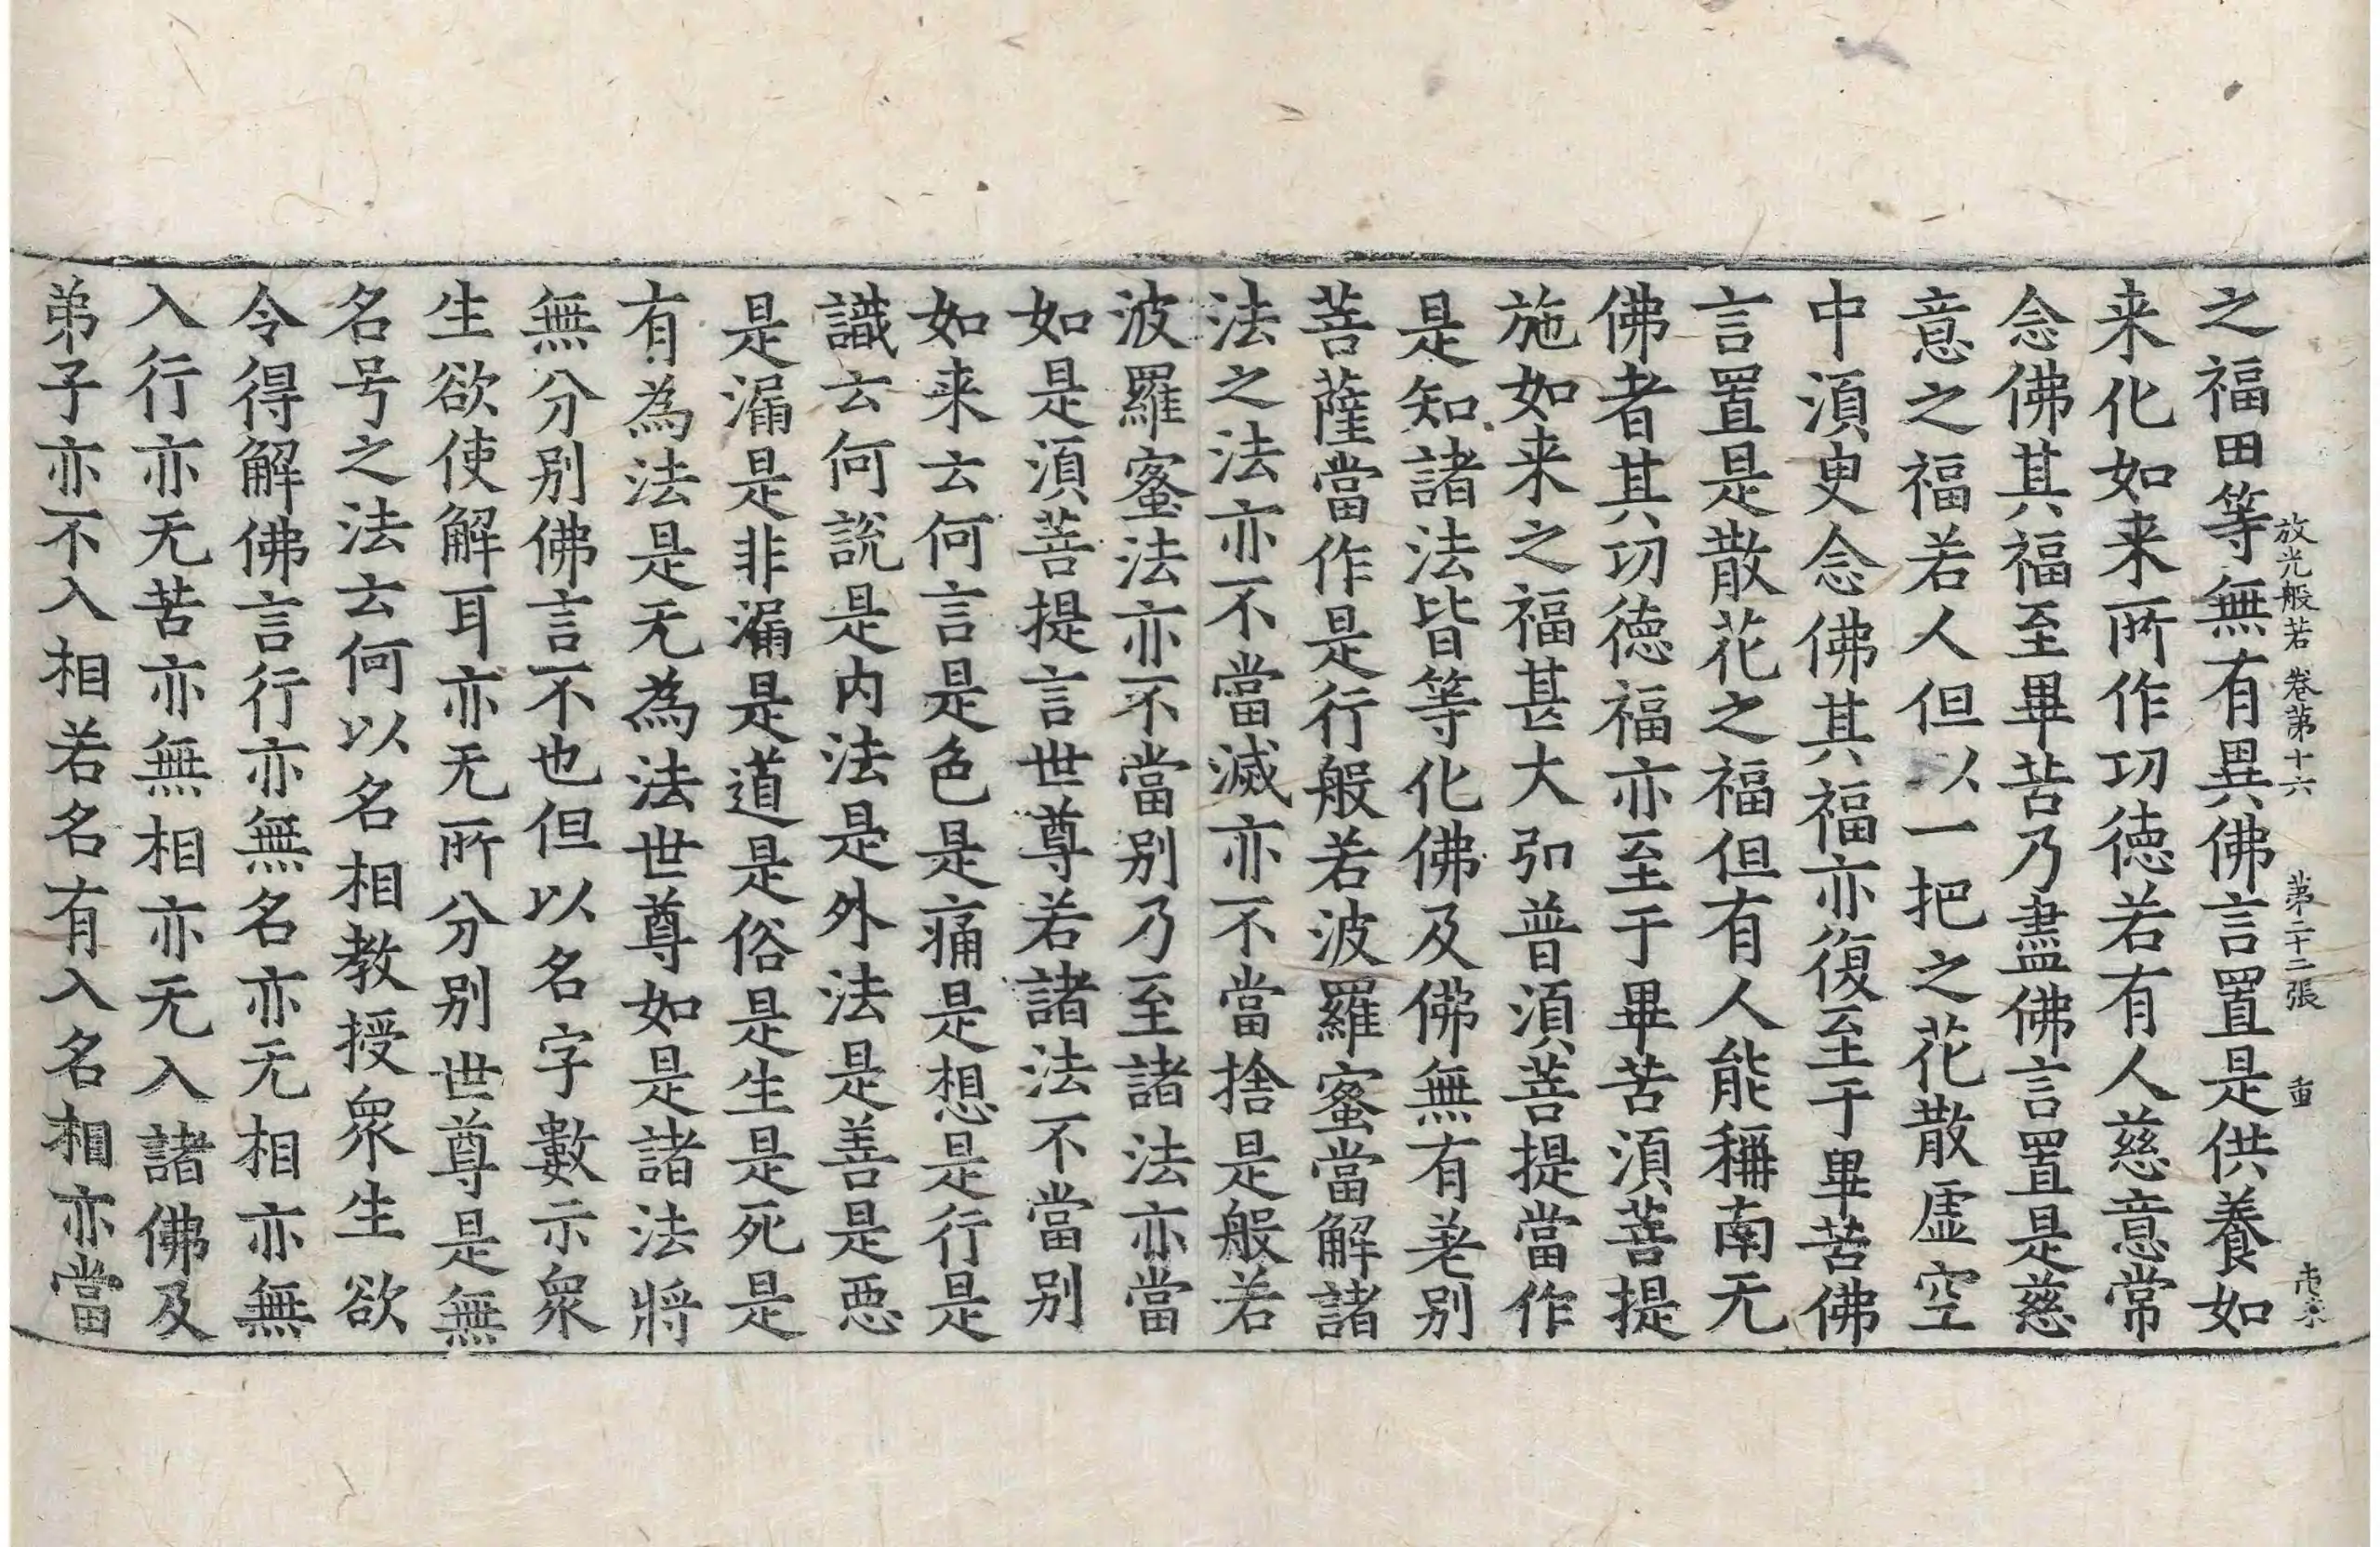 放光般若 卷第十六 第二十二張 重
之福田等無有異佛言置是供養如
来化如来所作功德若有人慈意常
念佛其福至畢苦乃盡佛言置是慈
意之福若人但以一把之花散虛空
中湏臾念佛其福亦復至于畢苦佛
言置是散花之福但有人能稱南无
佛者其功德福亦至于畢苦湏菩提
施如来之福甚大弘普湏菩提當作
是知諸法皆等化佛及佛無有差别
菩薩當作是行般若波羅蜜當解諸
法之法亦不當滅亦不當捨是般若
波羅蜜法亦不當别乃至諸法亦當
如是湏菩提言世尊若諸法不當别
如来云何言是色是痛是想是行是
識云何說是内法是外法是善是惡
是漏是非漏是道是俗是生是死是
有為法是无為法世尊如是諸法將
無分别佛言不也但以名字數示衆
生欲使解耳亦无所分别世尊是無
名号之法云何以名相教授衆生欲
令得解佛言行亦無名亦无相亦無
入行亦无苦亦無相亦无入諸佛及
弟子亦不入相若名有入名相亦當